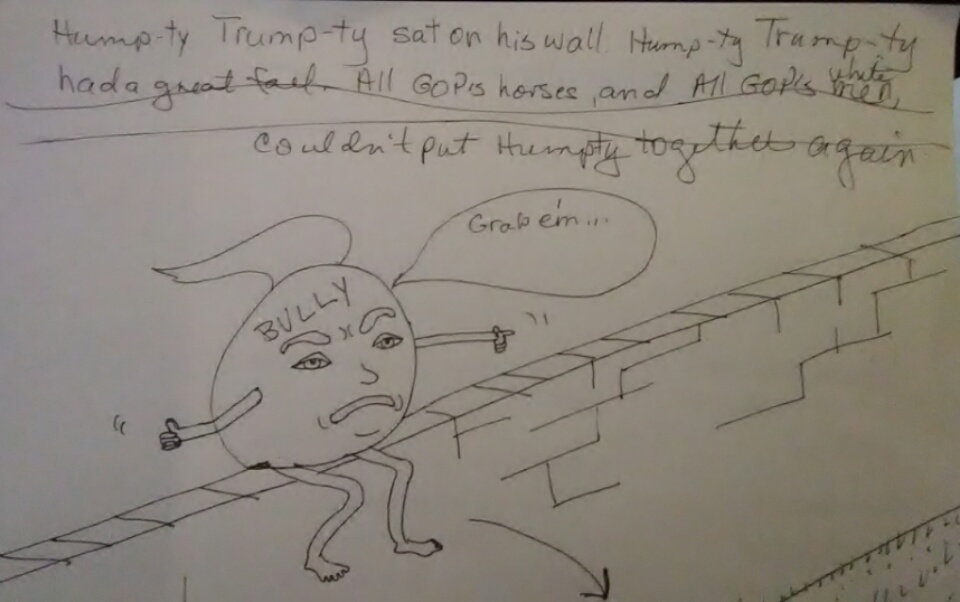 Hump-ty Trump-ty sat on his wall. Hump-ty Trump-ty
had a great fall. All GOP's horses, and All GOP's white men,
couldn't put Humpty together again
Grab em...
BULLY